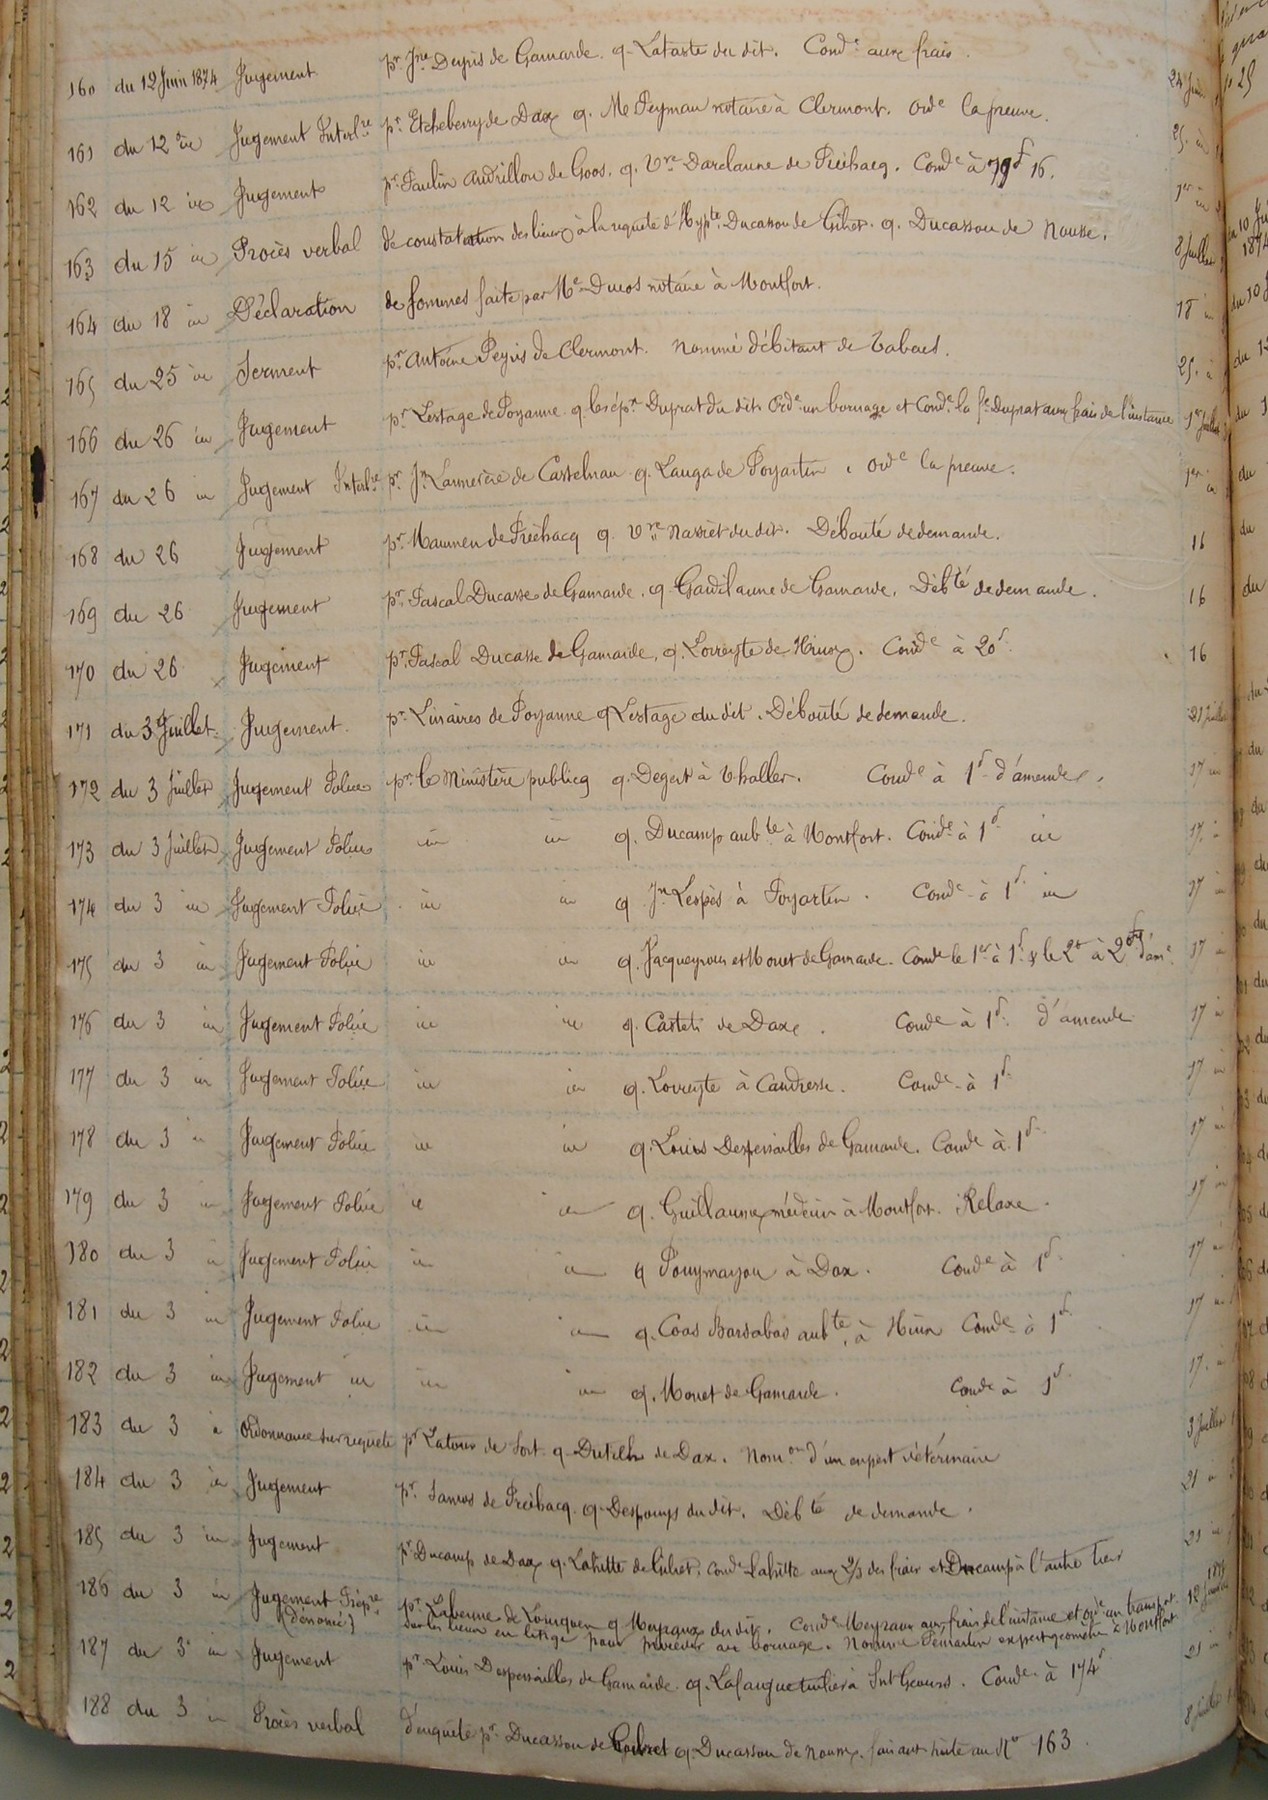 160 du 12 Juin 1874 Jugement pr. Jne Deyris de Gamarde q. Lataste du dit. Conde aux frais. 24 Juin
161 du 12 in Jugement Interlre pr. Etcheberry de Dax q. Me Peyman notaire à Clermont. Orde la preuve. 25. in
162 du 12 in Jugement pr. Paulin Audrillon de Goos. q. Vve Darclanne de Préchacq. Conde à 79f 16. 1er in
163 du 15 in Procès verbal de constatation des lieux à la requête d'Hypte Ducassou de Gibret. q. Ducassou de Nousse. 8 Juillet
164 du 18 in Déclaration de sommes faite par Me Ducos notaire à Montfort. 18 in
165 du 25 in Serment pr. Antoine Peyris de Clermont. Nommé débitant de tabacs. 25. in
166 du 26 in Jugement pr. Lestage de Poyanne q. les épx Duprat du dit. Orde un bornage et Conde la fe Duprat aux frais de l'instance 1er Juillet
167 du 26 in Jugement Interlre pr. Jn Lannerère de Castelnau q. Lauga de Poyartin. Orde la preuve. 1er in
168 du 26 Jugement pr. Maumen de Préchacq q. Vve Nassiet du dit. Débouté de demande. 16
169 du 26 Jugement pr. Pascal Ducasse de Gamarde. q. Gardilanne de Gamarde. Débté de demande. 16
170 du 26 Jugement pr. Pascal Ducasse de Gamarde, q. Lorreyte de Hinx. Conde à 20f. 16
171 du 3 Juillet Jugement pr. Linaires de Poyanne q. Lestage du dit. Débouté de demande. 21 Juillet
172 du 3 Juillet Jugement Police pr. le Ministère public q. Degert à Vhaller. Conde à 1f d'amende. 17 in
173 du 3 Juillet Jugement Police in in q. Ducamp aubte à Montfort. Conde à 1f in 17. in
174 du 3 in Jugement Police in in q. Jn Lespès à Poyartin. Conde à 1f in 17 in
175 du 3 in Jugement Police in in q. Jacqueyroux et Monet de Gamarde. Conde le 1er à 1f & le 2e à 2f d'ame 17 in
176 du 3 in Jugement Police in in q. Castets de Dax. Conde à 1f d'amende 17 in
177 du 3 in Jugement Police in in q. Lorreyte à Candresse. Conde à 1f 17 in
178 du 3 in Jugement Police in in q. Louis Desperailles de Gamarde. Conde à 1f 17 in
179 du 3 in Jugement Police in in q. Guillaume, médecin à Montfort. Relaxe. 17 in
180 du 3 in Jugement Police in in q Pouymayou à Dax. Conde à 1f. 17 in
181 du 3 in Jugement Police in in q. Coas Barsabas aubte. à Hinx Conde à 1f. 17 in
182 du 3 in Jugement in in in q. Monet de Gamarde. Conde à 1f 17. in
183 du 3 in Ordonnance sur requête pr Latour de Sort q. Dutilh de Dax. Nomon d'un expert vétérinaire 3 Juillet
184 du 3 in Jugement pr. Lamos de Préchacq. q. Despouys du dit. Débté de demande. 21 in
185 du 3 in Jugement pr Ducamp de Dax q. Lahitte de Gibret. Conde Lahitte aux 2/3 des frais et Ducamp à l'autre tiers 21 in
186 du 3 in Jugement Prépre pr. Laberme de Louer q Meyranx du dit. Conde Meyranx aux frais de l'instance et Orde un transport 12 Janvier
(dénoncé) sur les lieux en litige pour procéder au bornage. Nomme expert géomètre à Montfort
187 du 3 in Jugement pr. Louis Desperailles de Gamarde q. Lafargue tuilier à Snt Geours. Conde à 174f 21 in
188 du 3 in Procès verbal d'enquête pr. Ducassou de Gibret q. Ducassou de Nousse. faisant suite au No 163. 8 Juillet